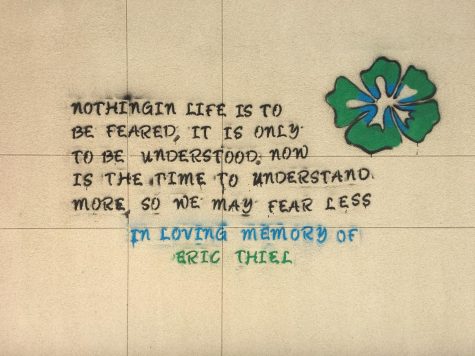 NOTHINGIN LIFE IS TO
BE FEARED, IT IS ONLY
TO BE UNDERSTOOD. NOW
IS THE TIME TO UNDERSTAND
MORE, SO WE MAY FEAR LESS
IN LOVING MEMORY OF
ERIC THIEL